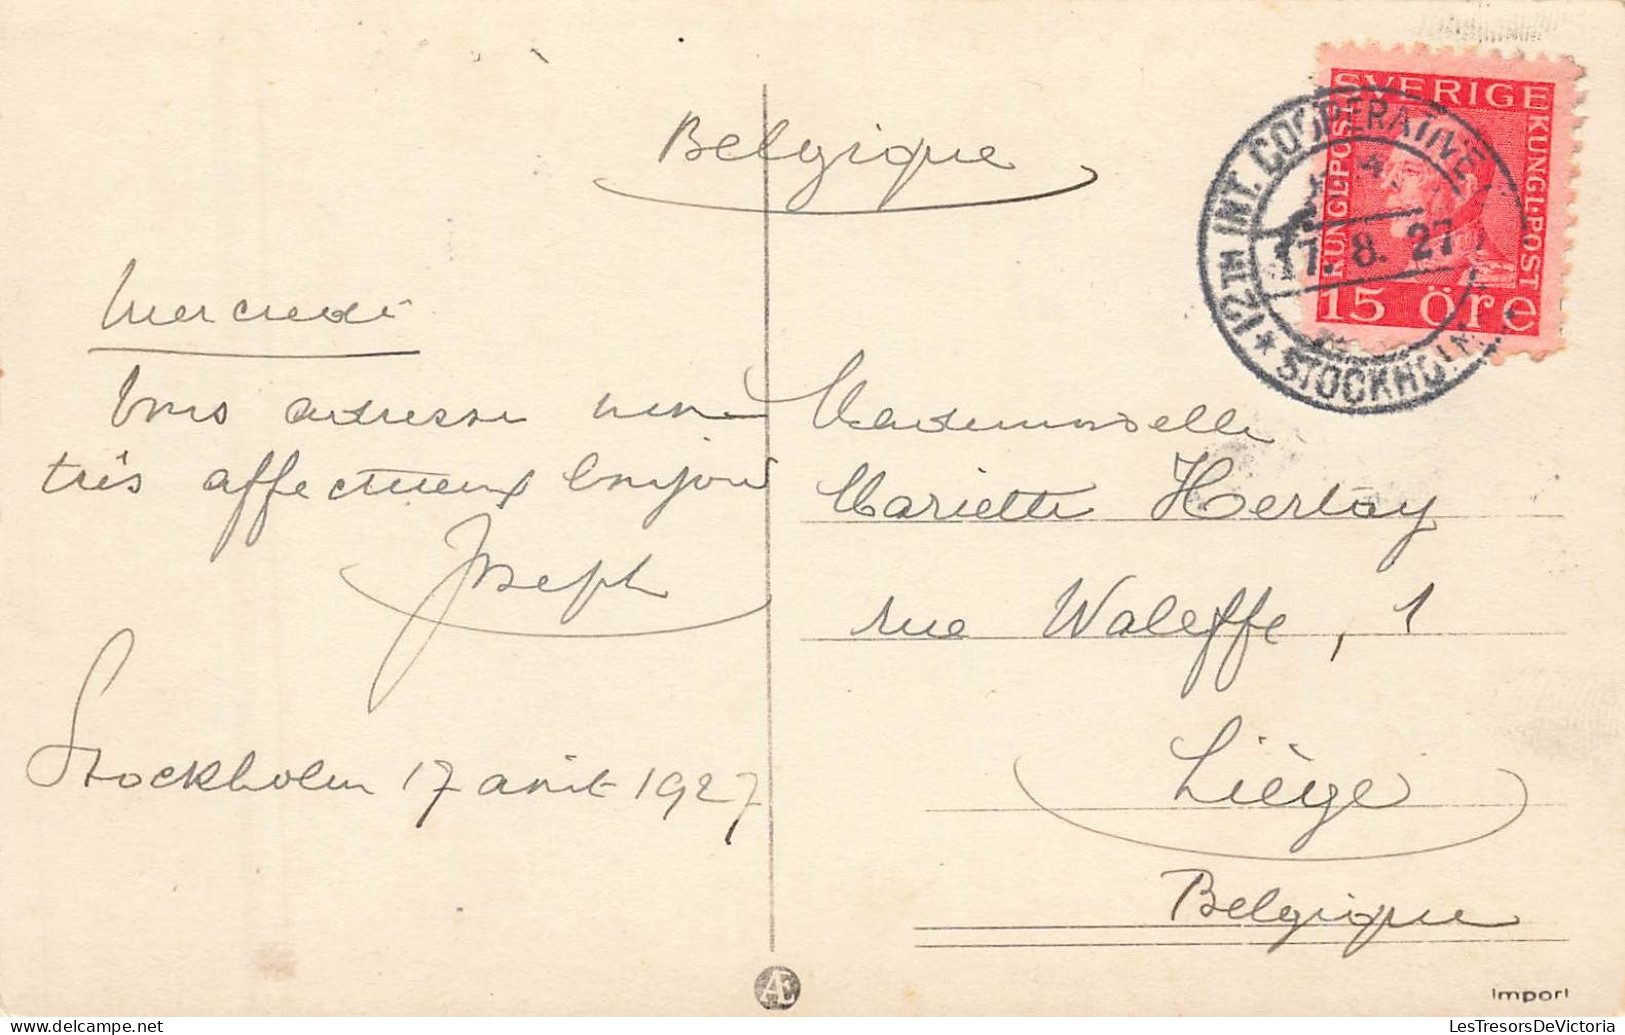 Belgique
SVERIGE
KUNGL-POST
KUNGL-POST
15 öre
12TH INT. COOPERATIVE
17. 8. 27
* STOCKHOLM
Mercredi
Vous adresse mon
très affectueux bonjour
Joseph
Stockholm 17 août 1927
Mademoiselle
Mariette Herlay
rue Waleffe, 1
Liège
Belgique
Æ
Import
LesTresorsDeVictoria.com